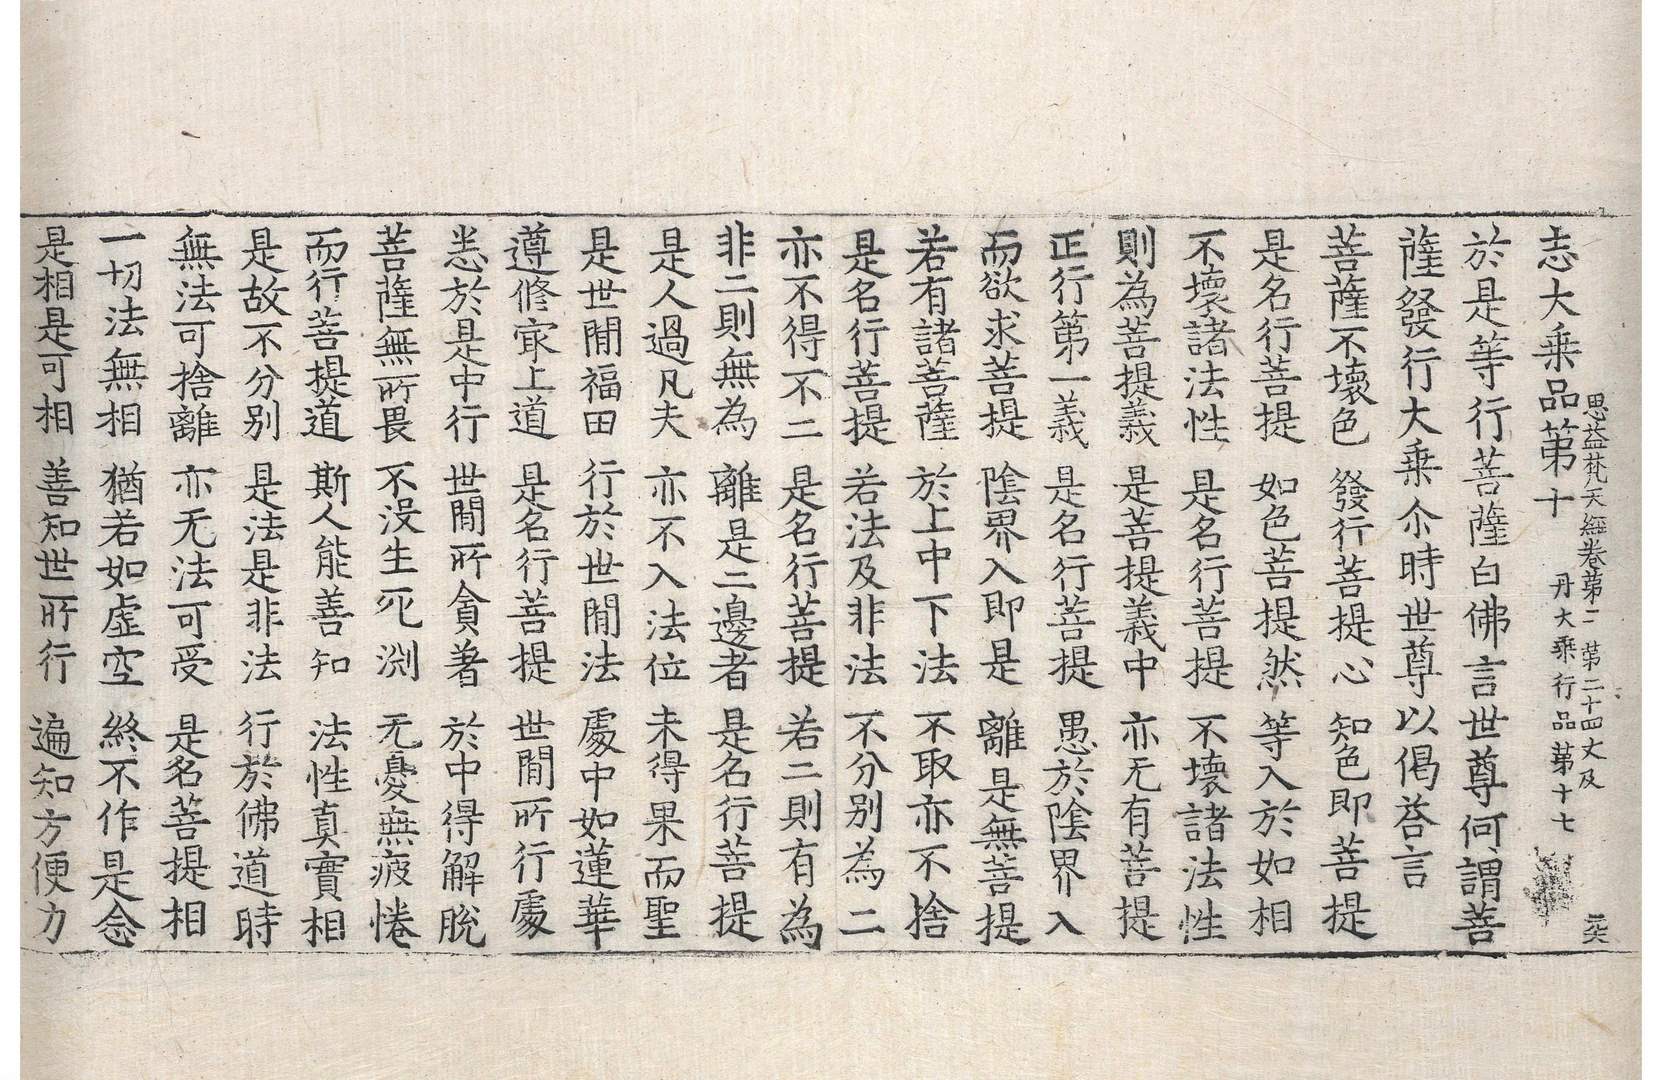 思益梵天經卷第二 第二十四丈及
志大乘品第十 丹大乘行品第十七
於是等行菩薩白佛言世尊何謂菩
薩發行大乘尒時世尊以偈荅言
菩薩不壞色 發行菩提心 知色即菩提
是名行菩提 如色菩提然 等入於如相
不壞諸法性 是名行菩提 不壞諸法性
則為菩提義 是菩提義中 亦无有菩提
正行第一義 是名行菩提 愚於陰界入
而欲求菩提 陰界入即是 離是無菩提
若有諸菩薩 於上中下法 不取亦不捨
是名行菩提 若法及非法 不分别為二
亦不得不二 是名行菩提 若二則有為
非二則無為 離是二邊者 是名行菩提
是人過凡夫 亦不入法位 未得果而聖
是世閒福田 行於世閒法 處中如蓮華
遵修㝡上道 是名行菩提 世閒所行處
悉於是中行 世閒所貪著 於中得解脫
菩薩無所畏 不没生死渕 无憂無疲惓
而行菩提道 斯人能善知 法性真實相
是故不分别 是法是非法 行於佛道時
無法可捨離 亦无法可受 是名菩提相
一切法無相 猶若如虛空 終不作是念
是相是可相 善知世所行 遍知方便力